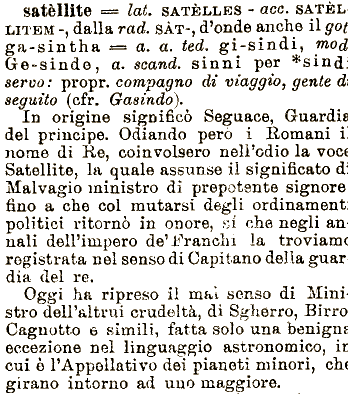 satèllite = lat. SATÈLLES - acc. SATÈL-
LITEM -, dalla rad. SÀT-, d'onde anche il got
ga-sintha = a. a. ted. gi-sindi, mod
Ge-sinde, a. scand. sinni per *sindi
servo: propr. compagno di viaggio, gente di
seguito (cfr. Gasindo).
In origine significò Seguace, Guardia
del principe. Odiando però i Romani il
nome di Re, coinvolsero nell'odio la voce
Satellite, la quale assunse il significato di
Malvagio ministro di prepotente signore
fino a che col mutarsi degli ordinamenti
politici ritornò in onore, sì che negli an-
nali dell'impero de' Franchi la troviamo
registrata nel senso di Capitano della guar
dia del re.
Oggi ha ripreso il mal senso di Mini-
stro dell'altrui crudeltà, di Sgherro, Birro
Cagnotto e simili, fatta solo una benigna
eccezione nel linguaggio astronomico, in
cui è l'Appellativo dei pianeti minori, che
girano intorno ad uno maggiore.